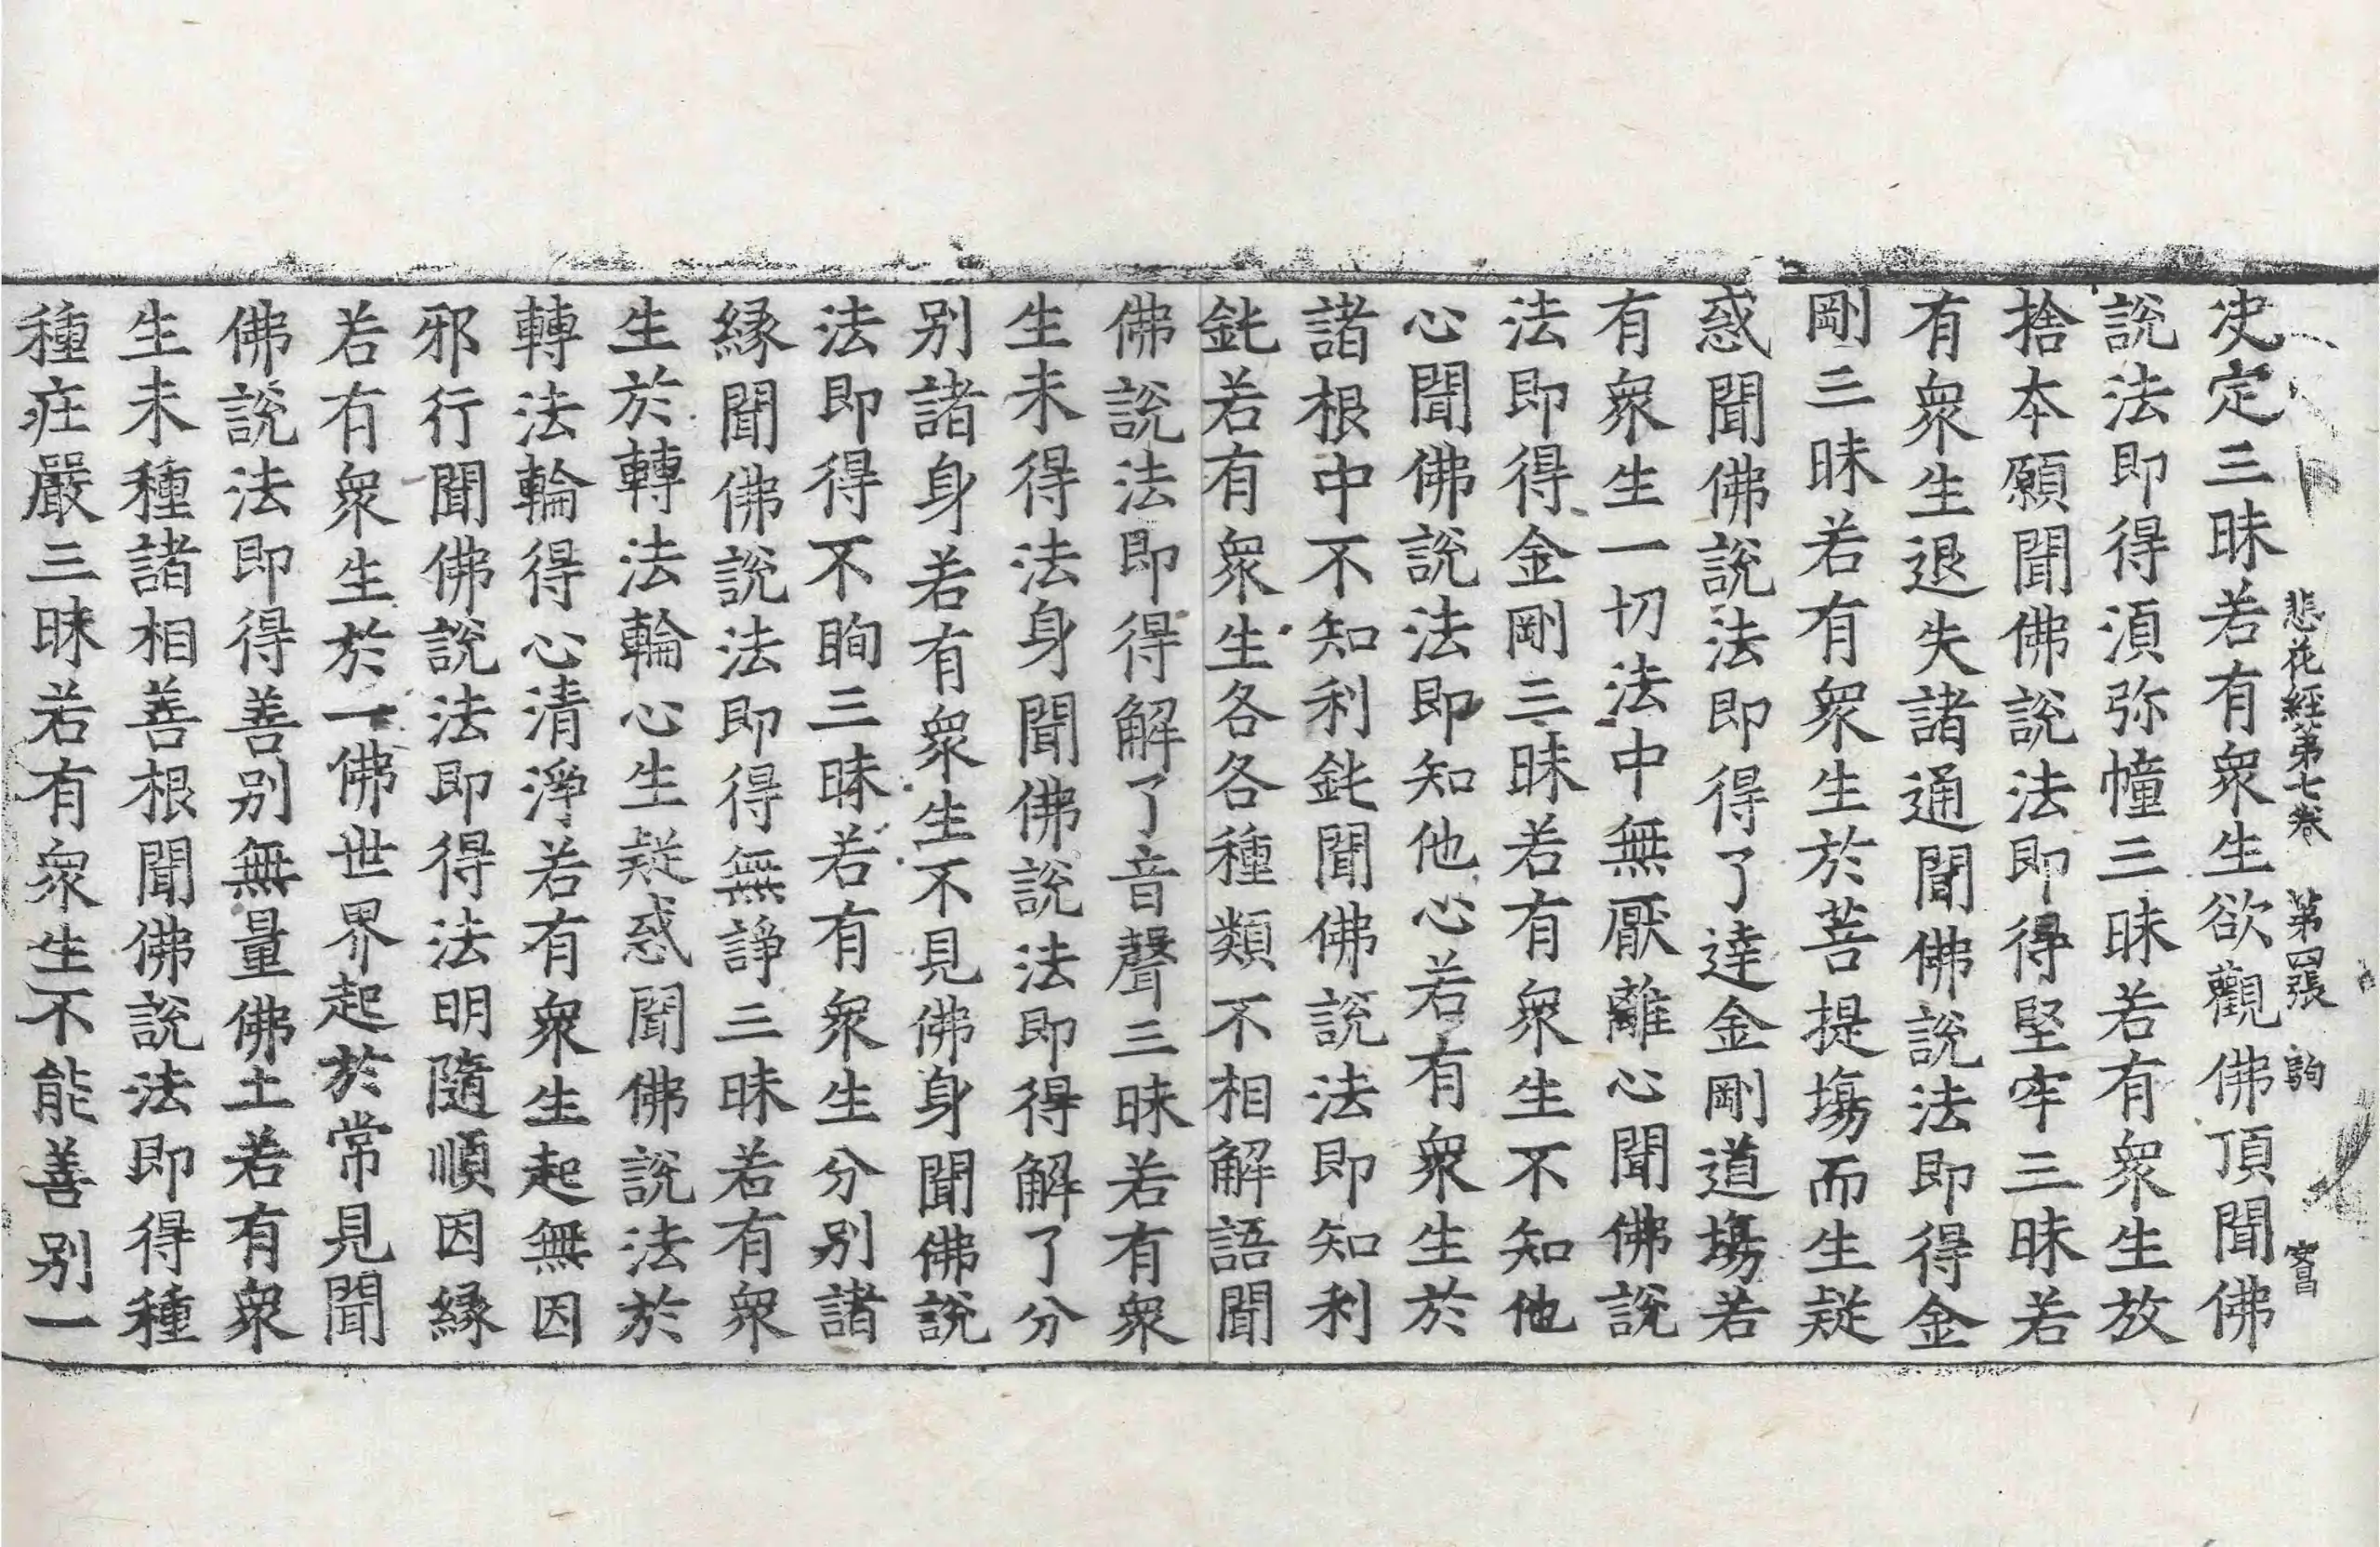 悲花經第七卷　第四張　駒
決定三昧若有衆生欲觀佛頂聞佛
說法即得湏弥幢三昧若有衆生放
捨本願聞佛說法即得堅牢三昧若
有衆生退失諸通聞佛說法即得金
剛三昧若有衆生於菩提塲而生疑
惑聞佛說法即得了達金剛道塲若
有衆生一切法中無厭離心聞佛說
法即得金剛三昧若有衆生不知他
心聞佛說法即知他心若有衆生於
諸根中不知利鈍聞佛說法即知利
鈍若有衆生各各種類不相解語聞
佛說法即得解了音聲三昧若有衆
生未得法身聞佛說法即得解了分
别諸身若有衆生不見佛身聞佛說
法即得不眴三昧若有衆生分别諸
縁聞佛說法即得無諍三昧若有衆
生於轉法輪心生疑惑聞佛說法於
轉法輪得心清淨若有衆生起無因
邪行聞佛說法即得法明隨順因縁
若有衆生於一佛世界起於常見聞
佛說法即得善别無量佛土若有衆
生未種諸相善根聞佛說法即得種
種庄嚴三昧若有衆生不能善别一